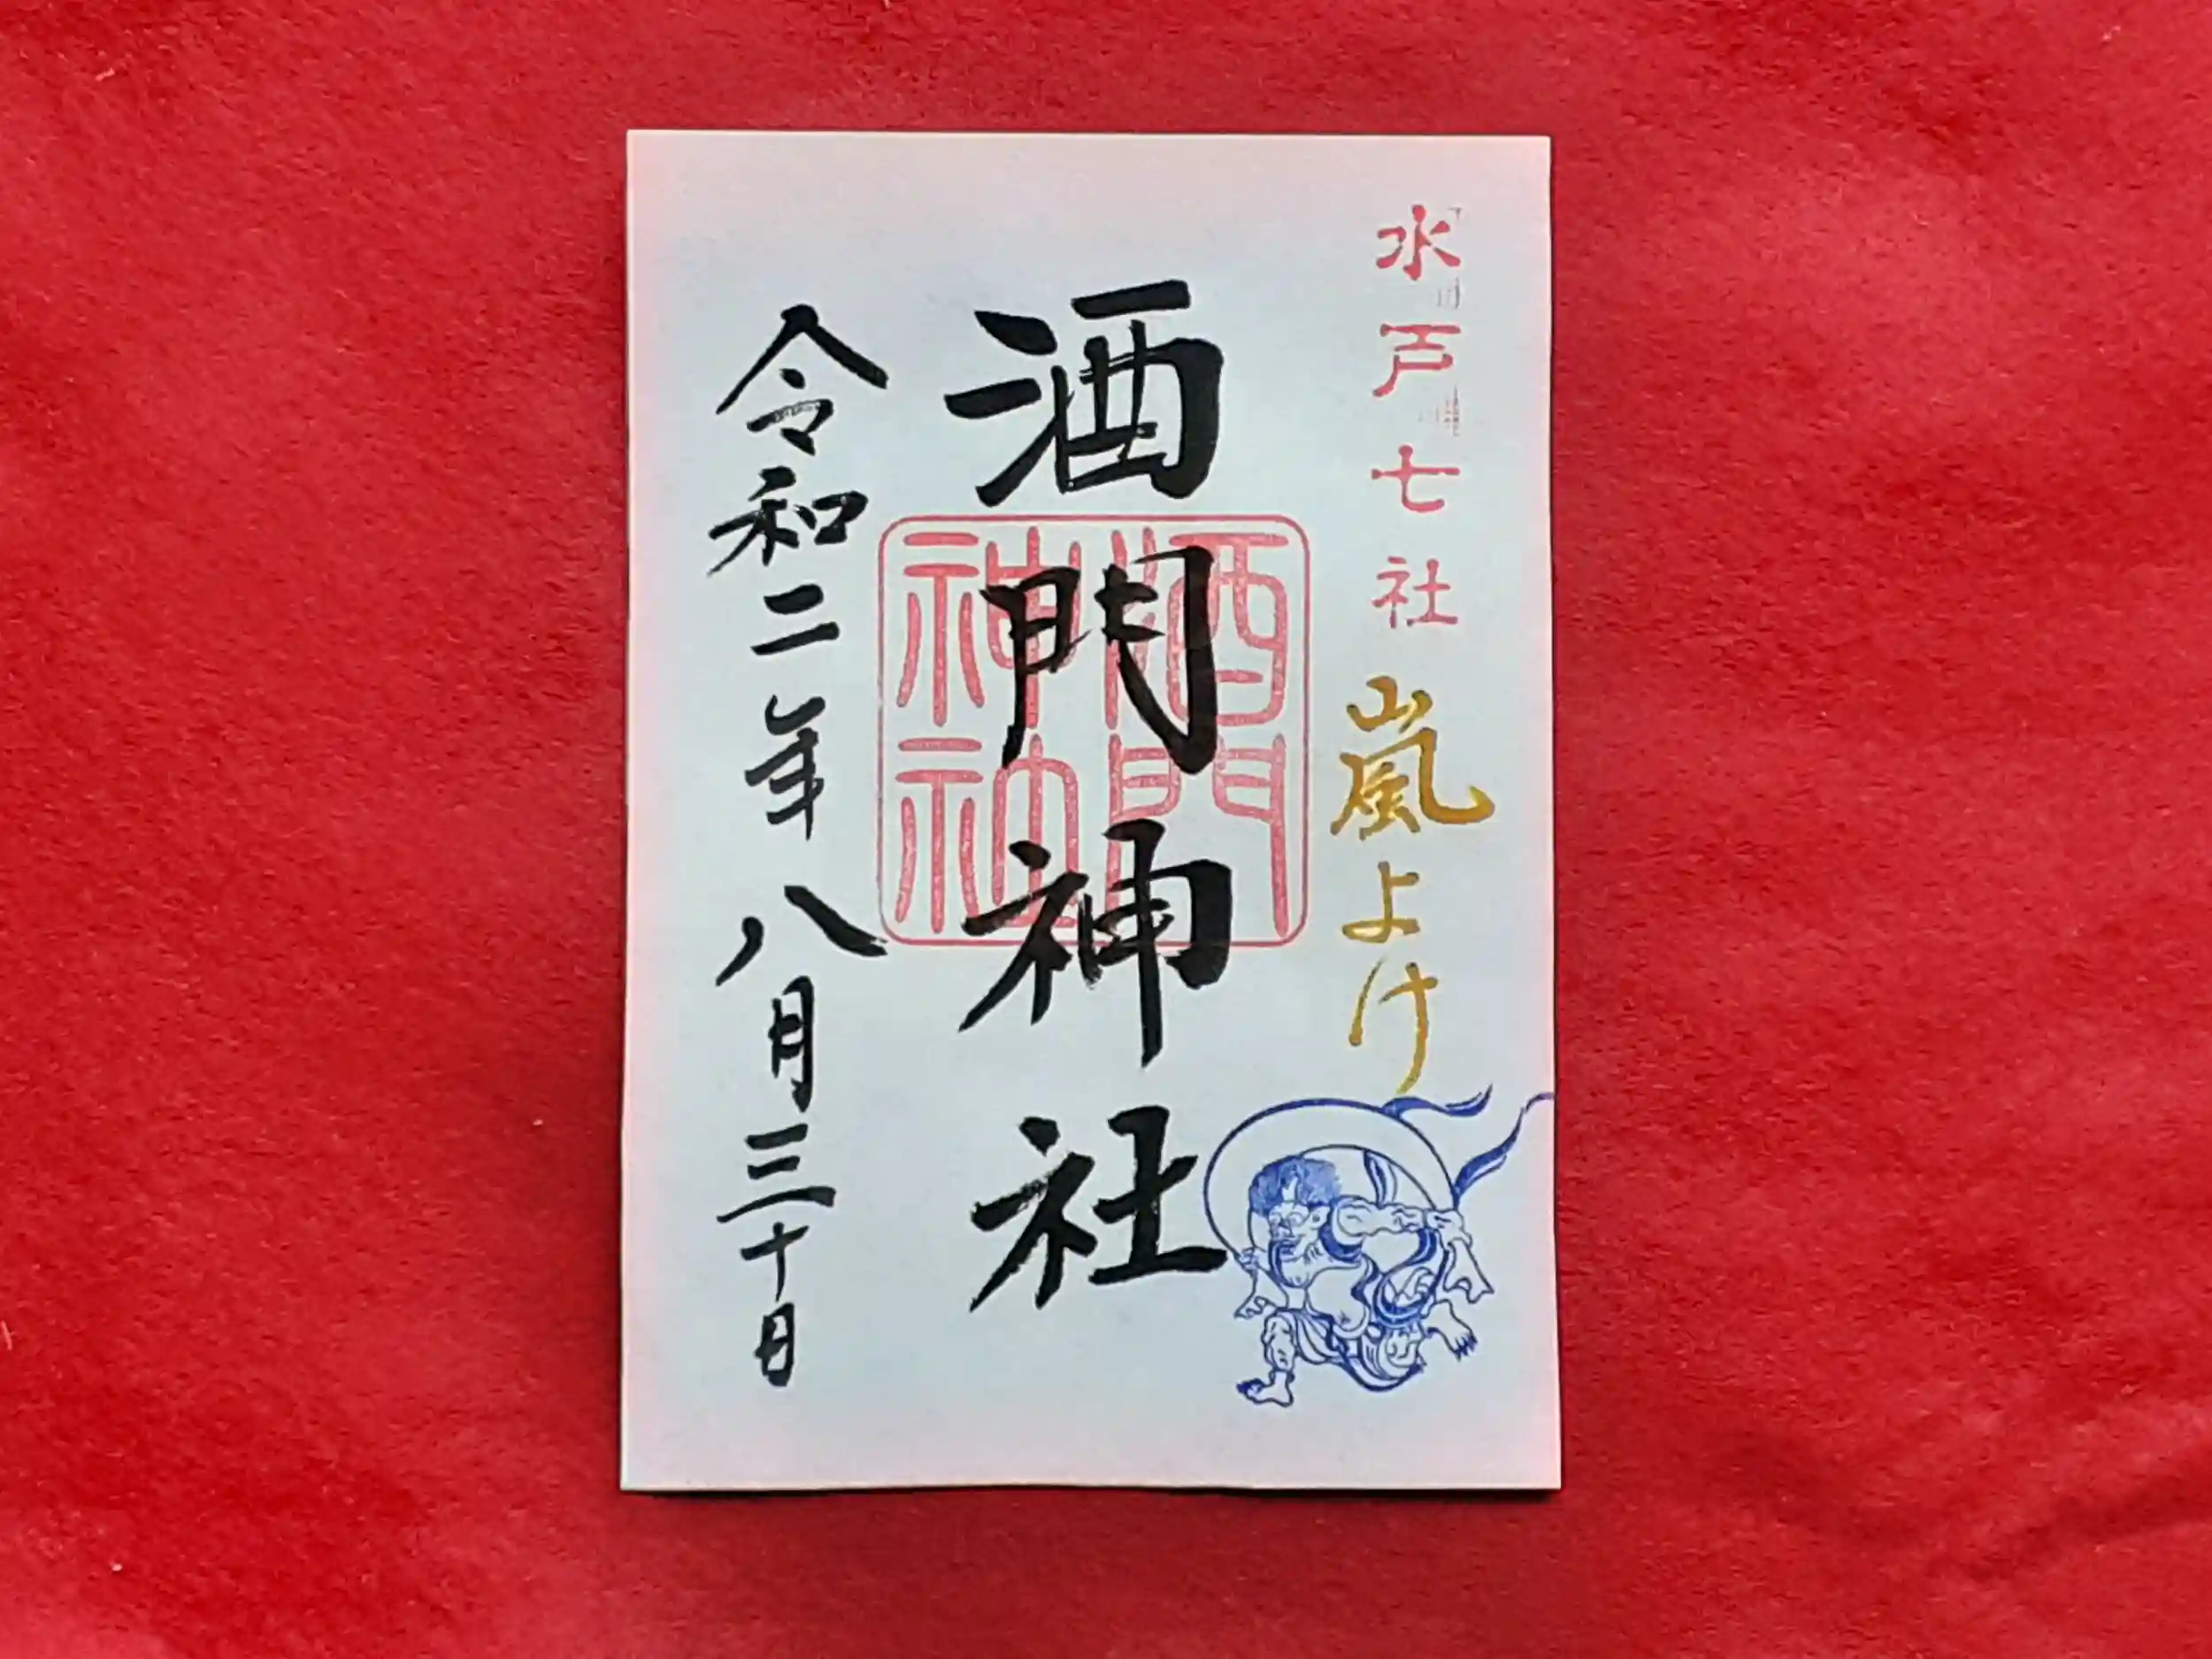 水戸七社
嵐よけ
酒門神社
酒門神社
令和二年八月三十日